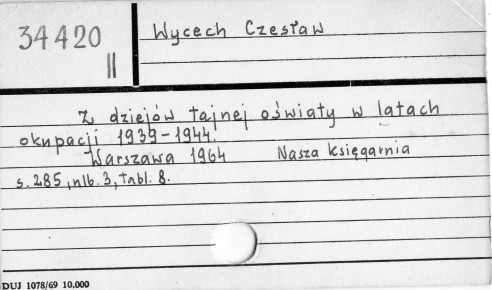 34420
II
Wycech Czesław
Z dziejów tajnej oświaty w latach
okupacji 1939-1944.
Warszawa 1964 Nasza Księgarnia
s. 285, nlb. 3, tabl. 8.
DUJ 1078/69 10.000